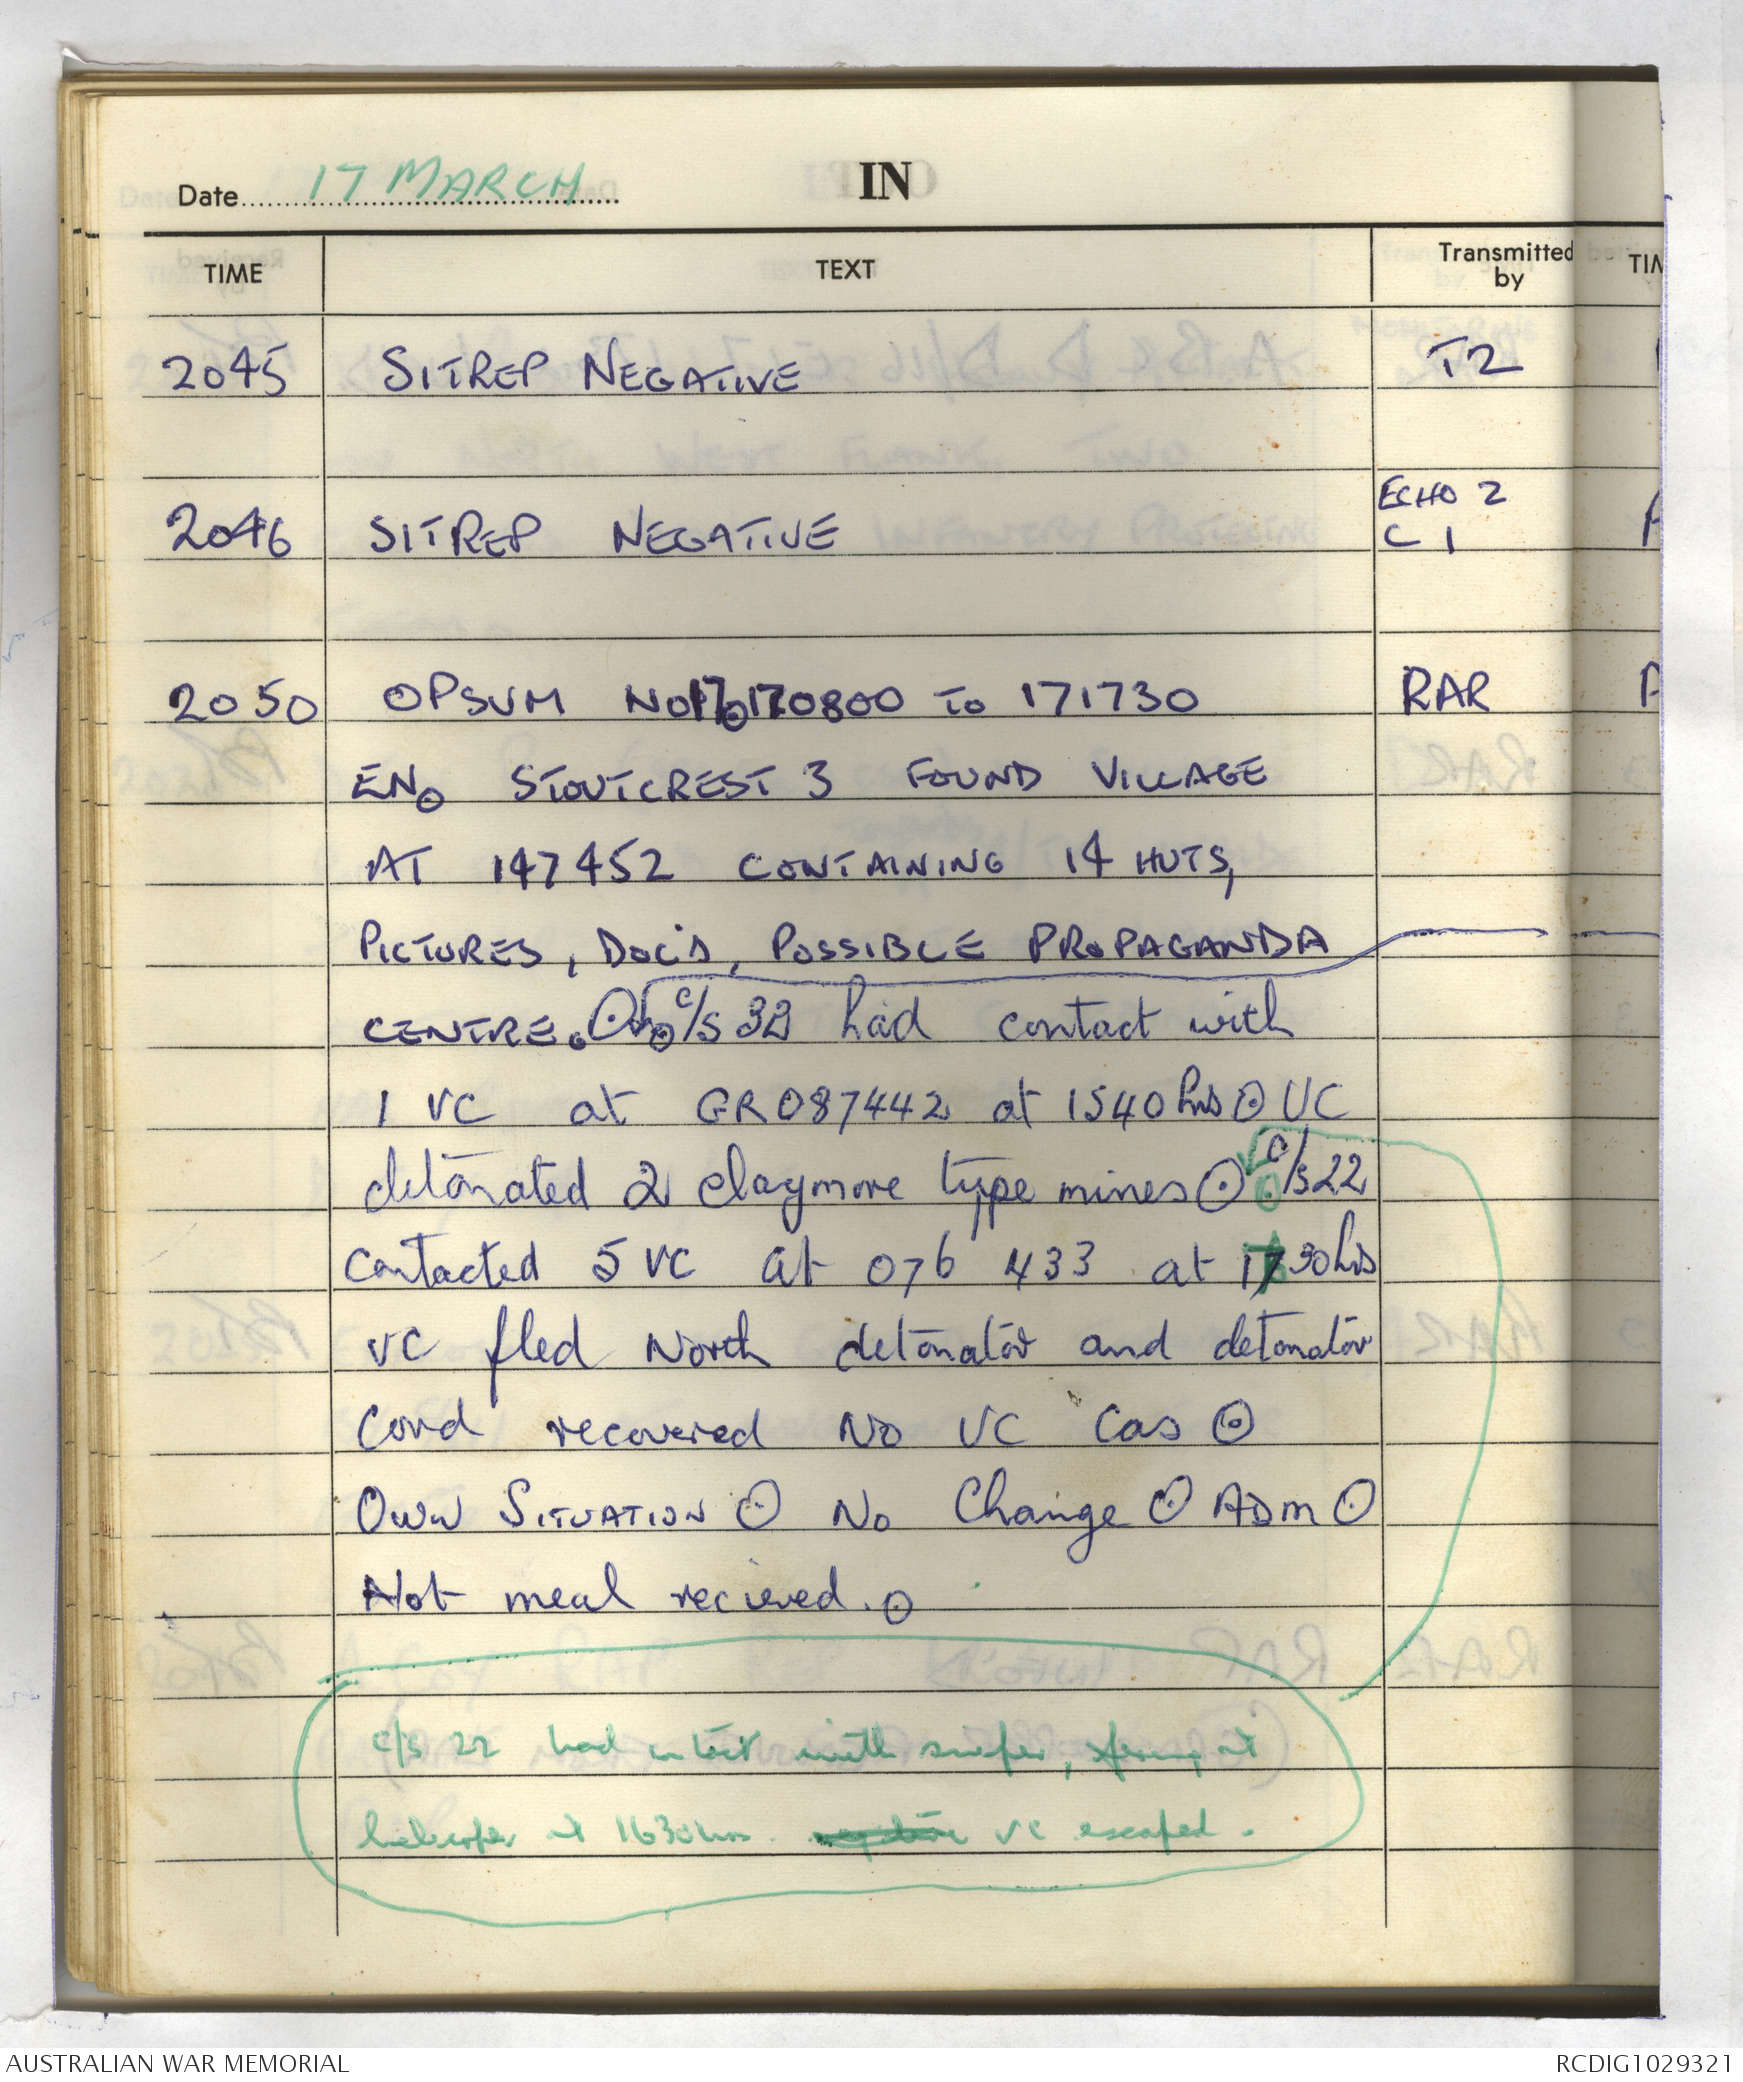 Date 17 MARCH
IN
TIME TEXT Transmitted by
2045 SITREP NEGATIVE T2
2046 SITREP NEGATIVE ECHO 2 C 1
2050 OPSUM NO 17⊙ 170800 TO 171730 RAR
EN⊙ STOUTCREST 3 FOUND VILLAGE
AT 147452 CONTAINING 14 HUTS,
PICTURES, DOC'S, POSSIBLE PROPAGANDA
CENTRE. ⊙ c/s 32 had contact with
1 VC at GR087442 at 1540 hrs ⊙ VC
detonated 2 claymore type mines ⊙ c/s 22
contacted 5 VC at 076 433 at 1730 hrs
VC fled North detonator and detonator
Cord recovered No VC Cas ⊙
OWN SITUATION ⊙ No Change ⊙ ADM ⊙
Hot meal recieved. ⊙
c/s 22 had contact with sniper, firing at
helicopter at 1630 hrs. VC escaped.
AUSTRALIAN WAR MEMORIAL
RCDIG1029321